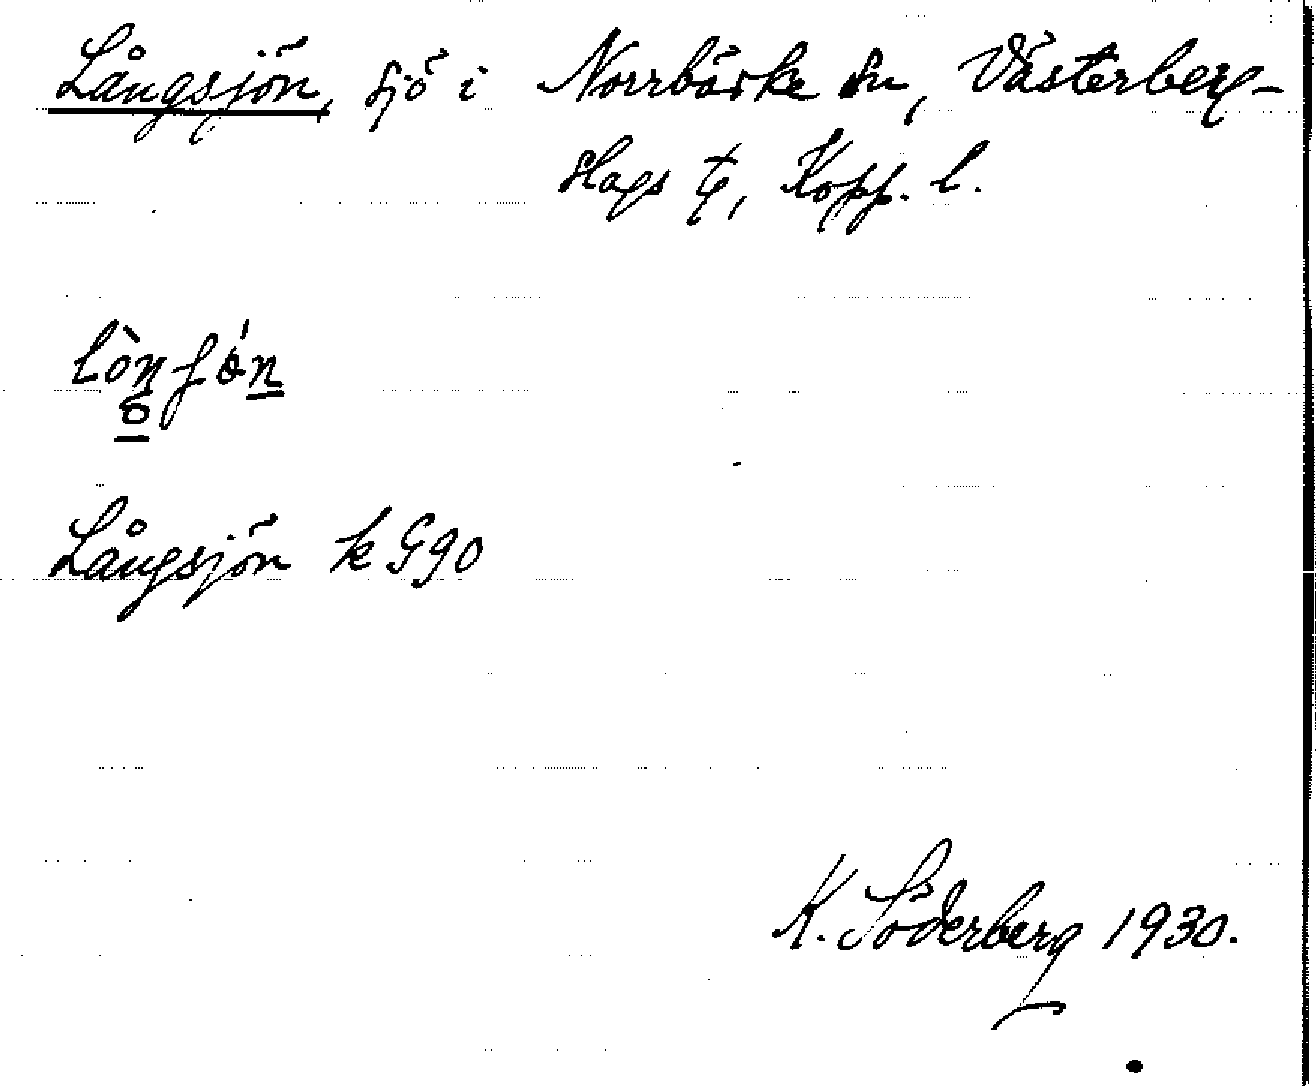 Långsjön, sjö i Norrbärke sn, Västerberg-
slags tg, Kopp. l.
Långsjön k G90
K. Söderberg 1930.